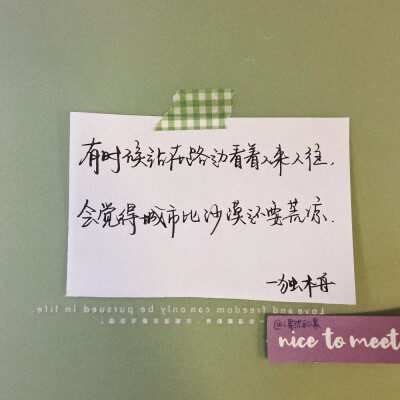 有时候站在路边看着人来人往，
会觉得城市比沙漠还要荒凉.
—独木舟
Love and freedom can only be pursued in life.
nice to meet